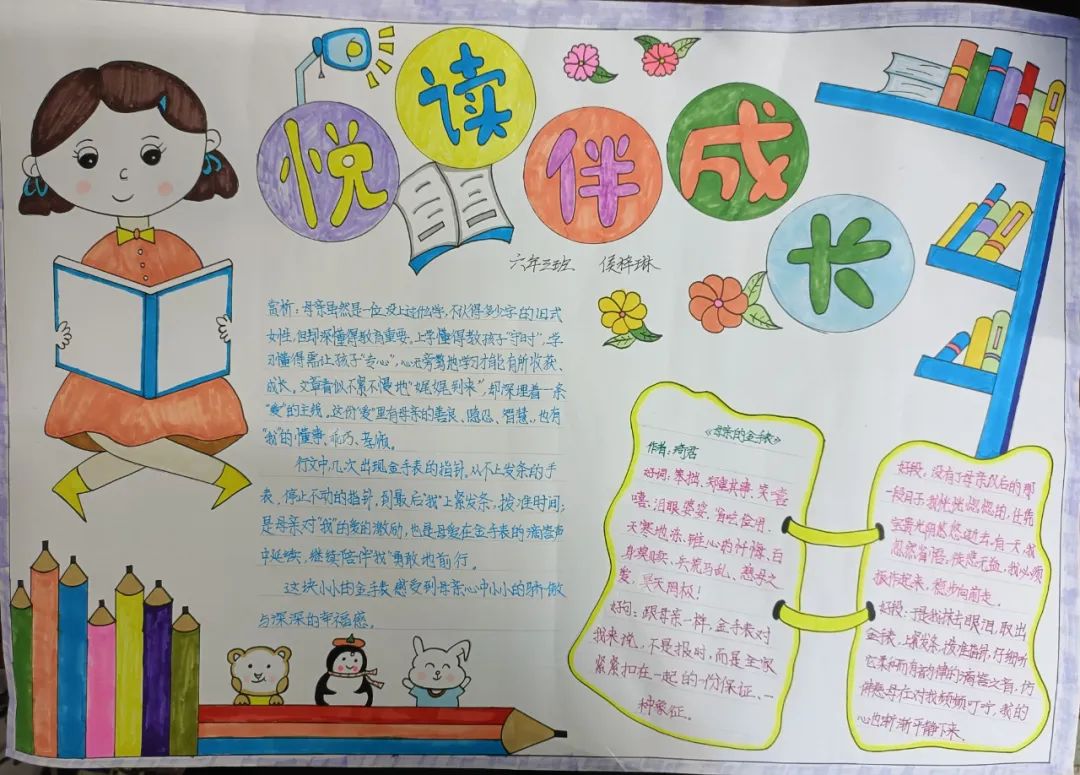 悦读伴成长
六年三班 侯梓琳
赏析：母亲虽然是一位没上过什么学，不认得多少字的旧式
女性，但却深懂得教育重要，上学懂得教孩子“守时”，学
习懂得需让孩子“专心”，心无旁骛地学习才能有所收获、
成长。文章看似不紧不慢地“娓娓到来”，却深埋着一条
“爱”的主线。这份“爱”里有母亲的善良、隐忍、智慧，也有
“我”的懂事、乖巧、孝顺。
行文中，几次出现金手表的指针，从不上发条的手
表、停止不动的指针，到最后“我”上紧发条，拨准时间；
是母亲对“我”的爱的激励，也是母爱在金手表的滴答声
中延续，继续“陪伴”“我”勇敢地前行。
这块小小的金手表感受到母亲心中小小的骄傲
与深深的幸福感。
《母亲的金手表》
作者：琦君
好词：笨拙、郑重其事、笑嘻
嘻、泪眼婆娑、省吃俭用、
天寒地冻、班心的忏悔、百
身莫赎、兵荒马乱、慈母之
爱，昊天罔极！
好句：跟母亲一样，金手表对
我来说，不是报时，而是全家
紧紧扣在一起的一份保证、一
种象征。
好段：没有了母亲以后的那
一段日子，我恍恍惚惚的，任凭
宝贵光阴悠悠逝去。有一天，我
忽然省悟：徒悲无益，我必须
振作起来，稳步向前走。
好段：于是我抹去眼泪，取出
金表，上紧发条，拨准指针，仔细听
它柔和而有韵律的滴答之音，仿
佛慈母在对我频频叮咛，我的
心也渐渐平静下来。